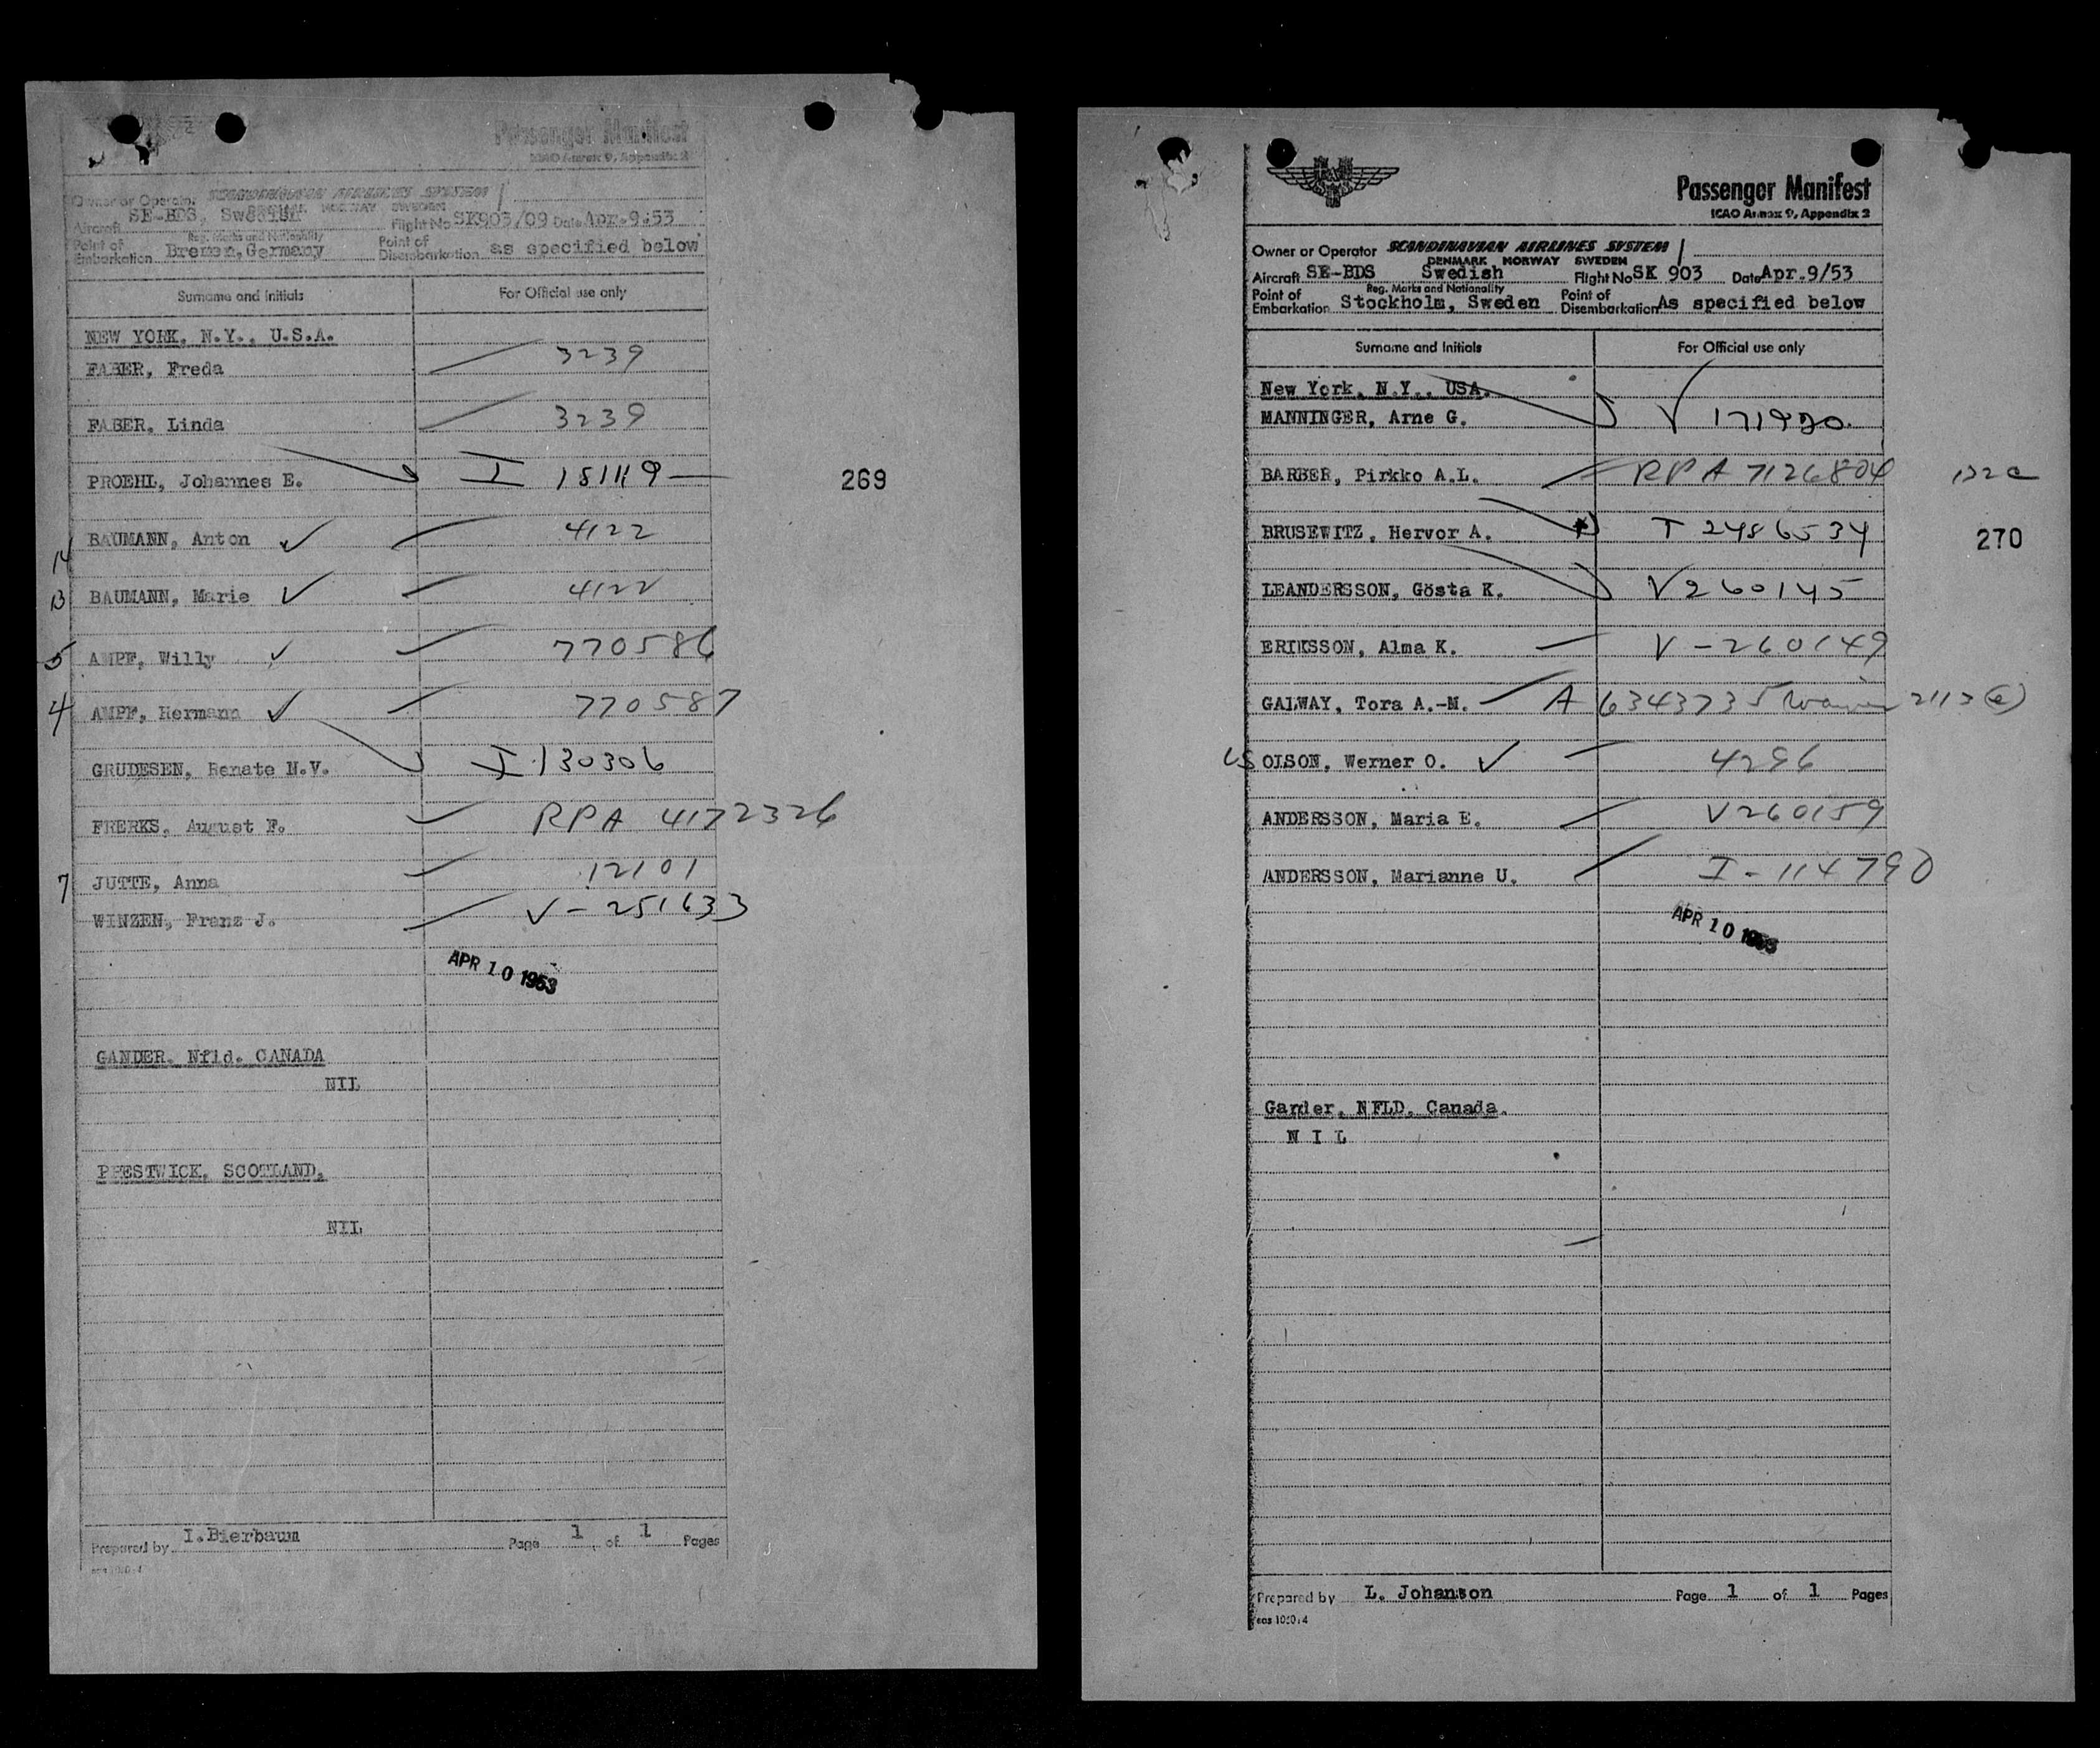 Passenger Manifest
ICAO Annex 9, Appendix 2
Owner or Operator SCANDINAVIAN AIRLINES SYSTEM
DENMARK NORWAY SWEDEN
Aircraft SE-BDS, Swedish Flight No SK903/09 Date Apr.9.53
Reg. Marks and Nationality
Point of Embarkation Bremen, Germany Point of Disembarkation as specified below
Surname and Initials For Official use only
NEW YORK, N.Y., U.S.A.
FABER, Freda 3239
FABER, Linda 3239
PROEHL, Johannes E. I 181119
269
BAUMANN, Anton 4122
14
13 BAUMANN, Marie 4122
5 AMPF, Willy 770586
4 AMPF, Hermann 770587
GRUDESEN, Renate H.V. I 130306
FRERKS, August F. RPA 4172326
7 JUTTE, Anna 12101
WINZEN, Franz J. V-251633
APR 10 1953
GANDER, Nfld. CANADA
NIL
PRESTWICK, SCOTLAND,
NIL
Prepared by I.Bierbaum Page 1 of 1 Pages
Passenger Manifest
ICAO Annex 9, Appendix 2
Owner or Operator SCANDINAVIAN AIRLINES SYSTEM
DENMARK NORWAY SWEDEN
Aircraft SE-BDS Swedish Flight No SK 903 Date Apr.9/53
Reg. Marks and Nationality
Point of Embarkation Stockholm, Sweden Point of Disembarkation As specified below
Surname and Initials For Official use only
New York, N.Y., USA.
MANNINGER, Arne G. V 171920
BARBER, Pirkko A.L. RPA 7126804
BRUSEWITZ, Hervor A. T 2486534
270
LEANDERSSON, Gösta K. V260145
ERIKSSON, Alma K. V-260149
GALWAY, Tora A.-M. A 6343735 Waiver 211
US OLSON, Werner O. 4296
ANDERSSON, Maria E. V260159
ANDERSSON, Marianne U. I-114790
APR 10 1953
Gander, NFLD, Canada.
N I L
Prepared by L. Johanson Page 1 of 1 Pages